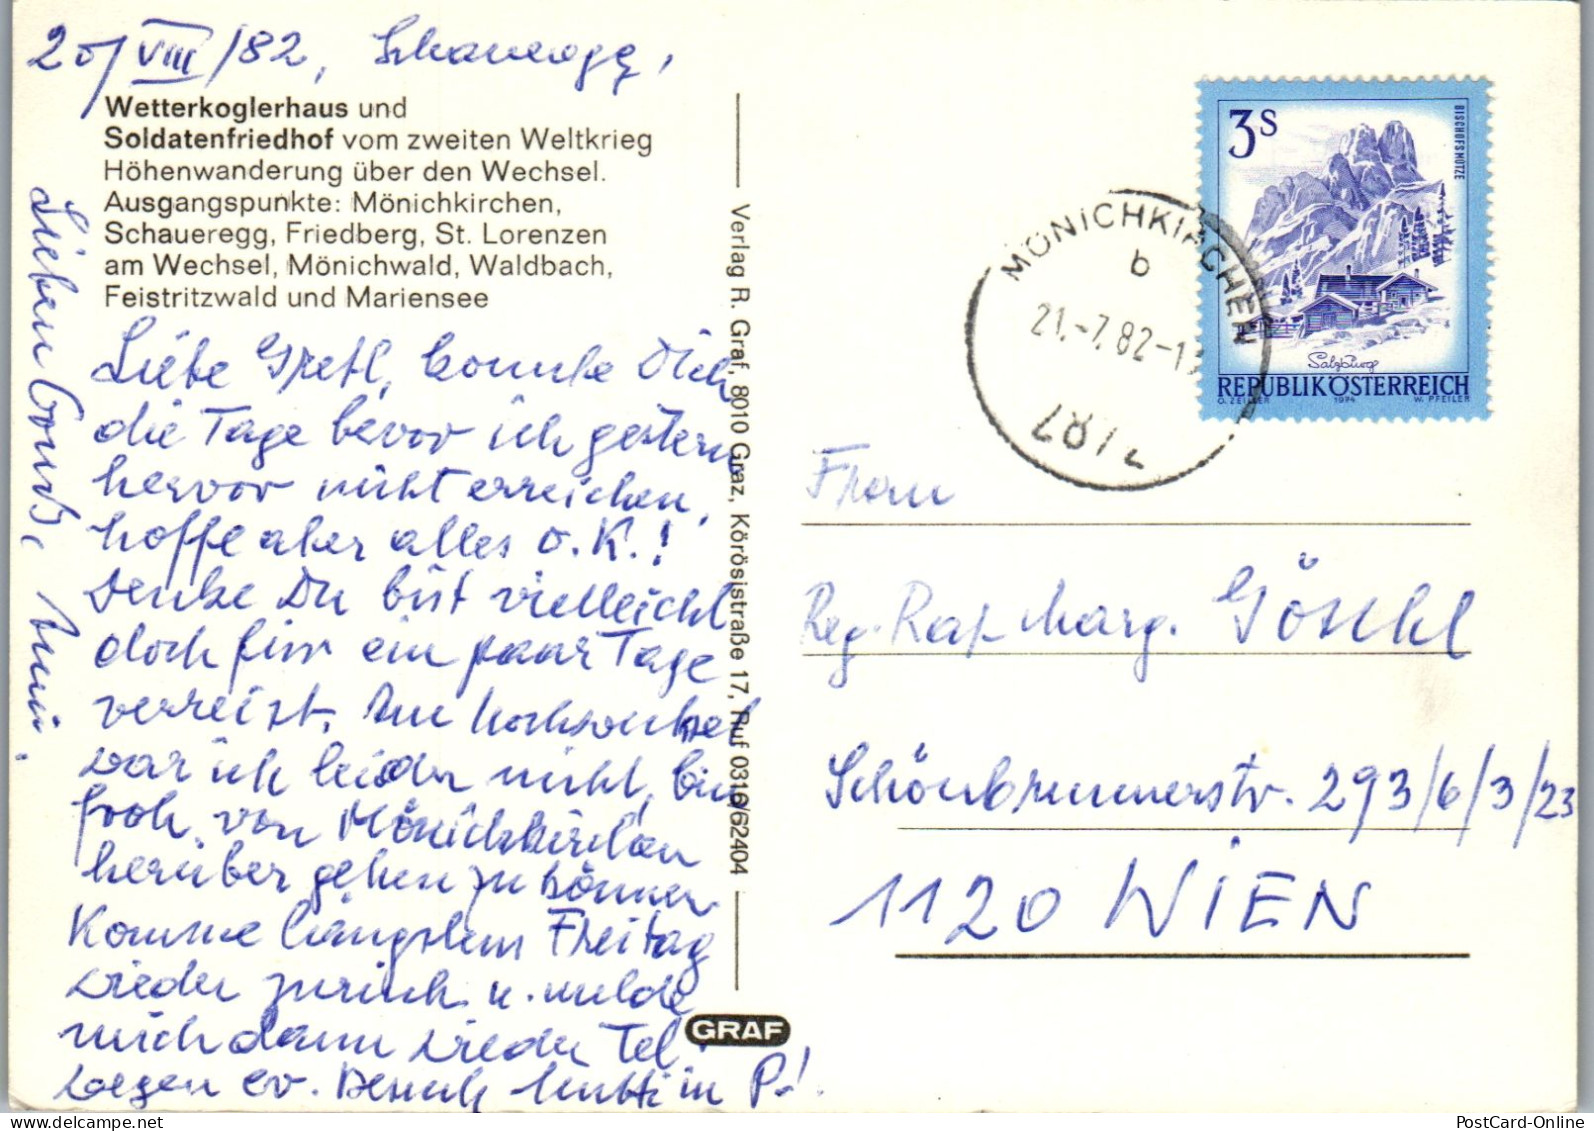 20/VIII/82, Schaueregg,
Wetterkoglerhaus und
Soldatenfriedhof vom zweiten Weltkrieg
Höhenwanderung über den Wechsel.
Ausgangspunkte: Mönichkirchen,
Schaueregg, Friedberg, St. Lorenzen
am Wechsel, Mönichwald, Waldbach,
Feistritzwald und Mariensee
Liebe Gretl, konnte Dich
die Tage bevor ich gestern
hervor nicht erreichen,
hoffe aber alles o.K.!
Denke Du bist vielleicht
doch für ein paar Tage
verreist. Am Hochwechsel
war ich leider nicht, bin
froh, von Mönichkirchen
herüber gehen zu können
Komme längstens Freitag
wieder zurück u. melde
mich dann wieder Tel.
wegen ev. Besuch Mutti in P.!
Lieben Gruß,
Verlag R. Graf, 8010 Graz, Körösistraße 17, Ruf 0316/62404
GRAF
3S
BISCHOFSMÜTZE
Salzburg
REPUBLIK ÖSTERREICH
O. ZEILLER 1974 W. PFEILER
MÖNICHKIRCHEN
b
21.-7.82-1
Frau
Reg. Rat Marg. Göschl
Schönbrunnerstr. 293/6/3/23
1120 WIEN
PostCard-Online